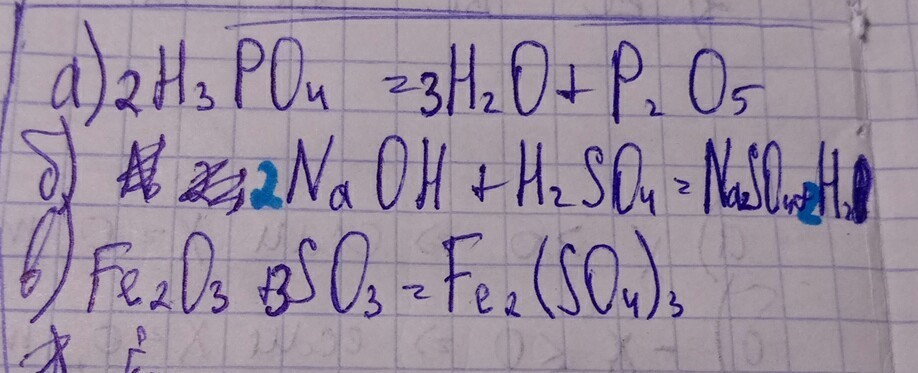 а) 2H₃PO₄ = 3H₂O + P₂O₅
б) 2NaOH + H₂SO₄ = Na₂SO₄ + 2H₂O
в) Fe₂O₃ + 3SO₃ = Fe₂(SO₄)₃